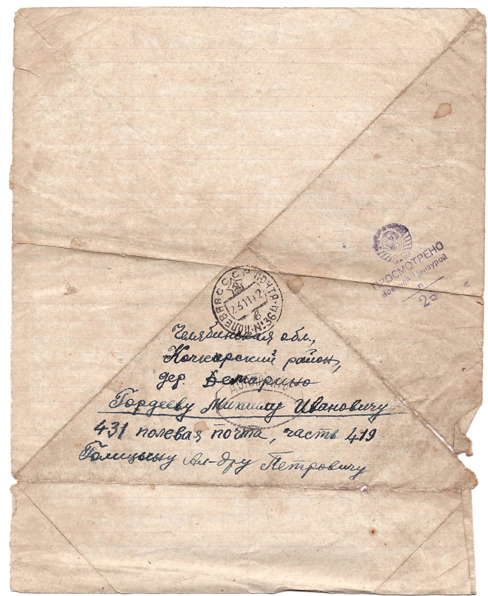 ПРОСМОТРЕНО
Военной Цензурой
СССР ПОЧТА ПОЛЕВАЯ
Челябинская обл,
Кочкарский район,
дер. Демарино
Гордееву Михаилу Ивановичу
431 полевая почта, часть 419
Голицыну Ал-дру Петровичу